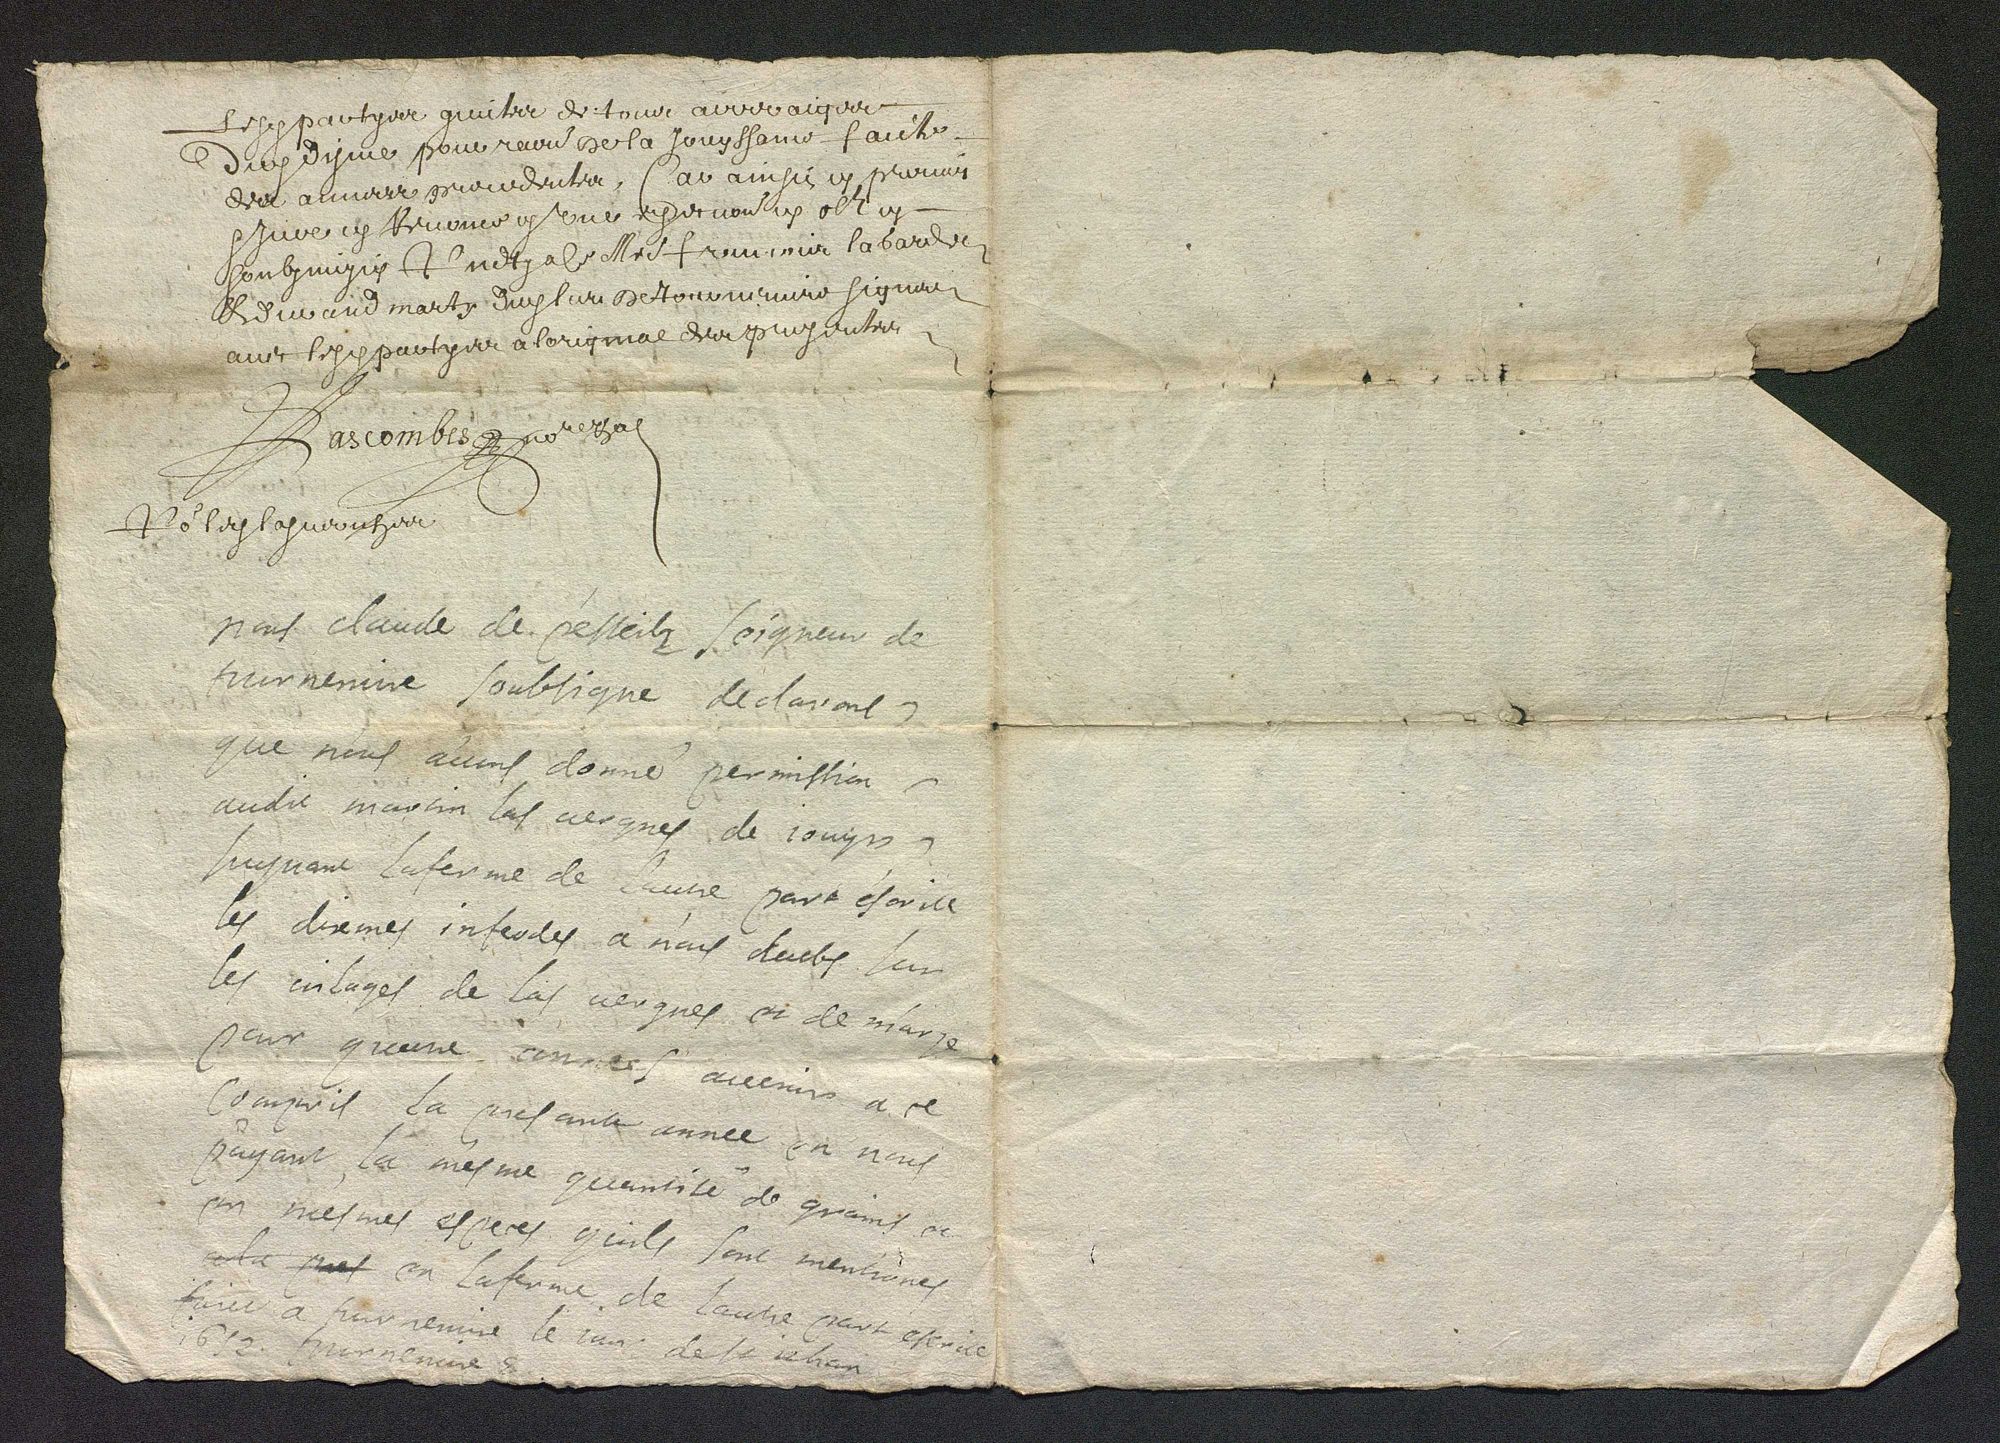 lesd partyes quictes de tous arreraiges
dud disme pour raon de la jouyssance faicte
des annees precedentes, Car ainsin
Renonce obl
soubzmises Francois labarde
marty dud lieu de Tournemire signes
avec lesd partyes a loriginal des presentes
Lascombes no.re royal
Po.r led lasvernhes
nous claude de pesteilz seigneur de
turnemire soubsigne declarons
que nous auons donné permission
audit martin las uergnes de iouyr
suyuant laferme de lautre part escrite
les disemes infeodes a nous deubs sur
les uilages de las uergnes et de marze
pour quatre annees auenir a ce
compris la presante annee en nous
payant la mesme quantité de grains et
en mesmes especes quils sont mentiones
a la en laferme de lautre part escrite
faict a turnemire le iour de st iehan
1652. turnemire